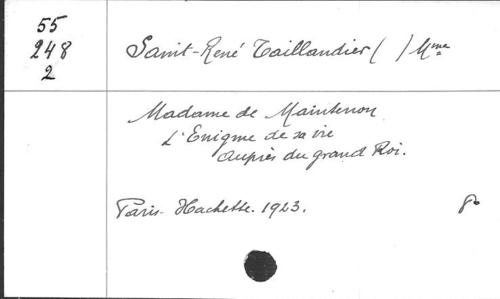 55
248
2
Saint-René Taillandier ( ) Mme
Madame de Maintenon
L'Enigme de sa vie
auprès du grand Roi.
Paris. Hachette. 1923. 8º